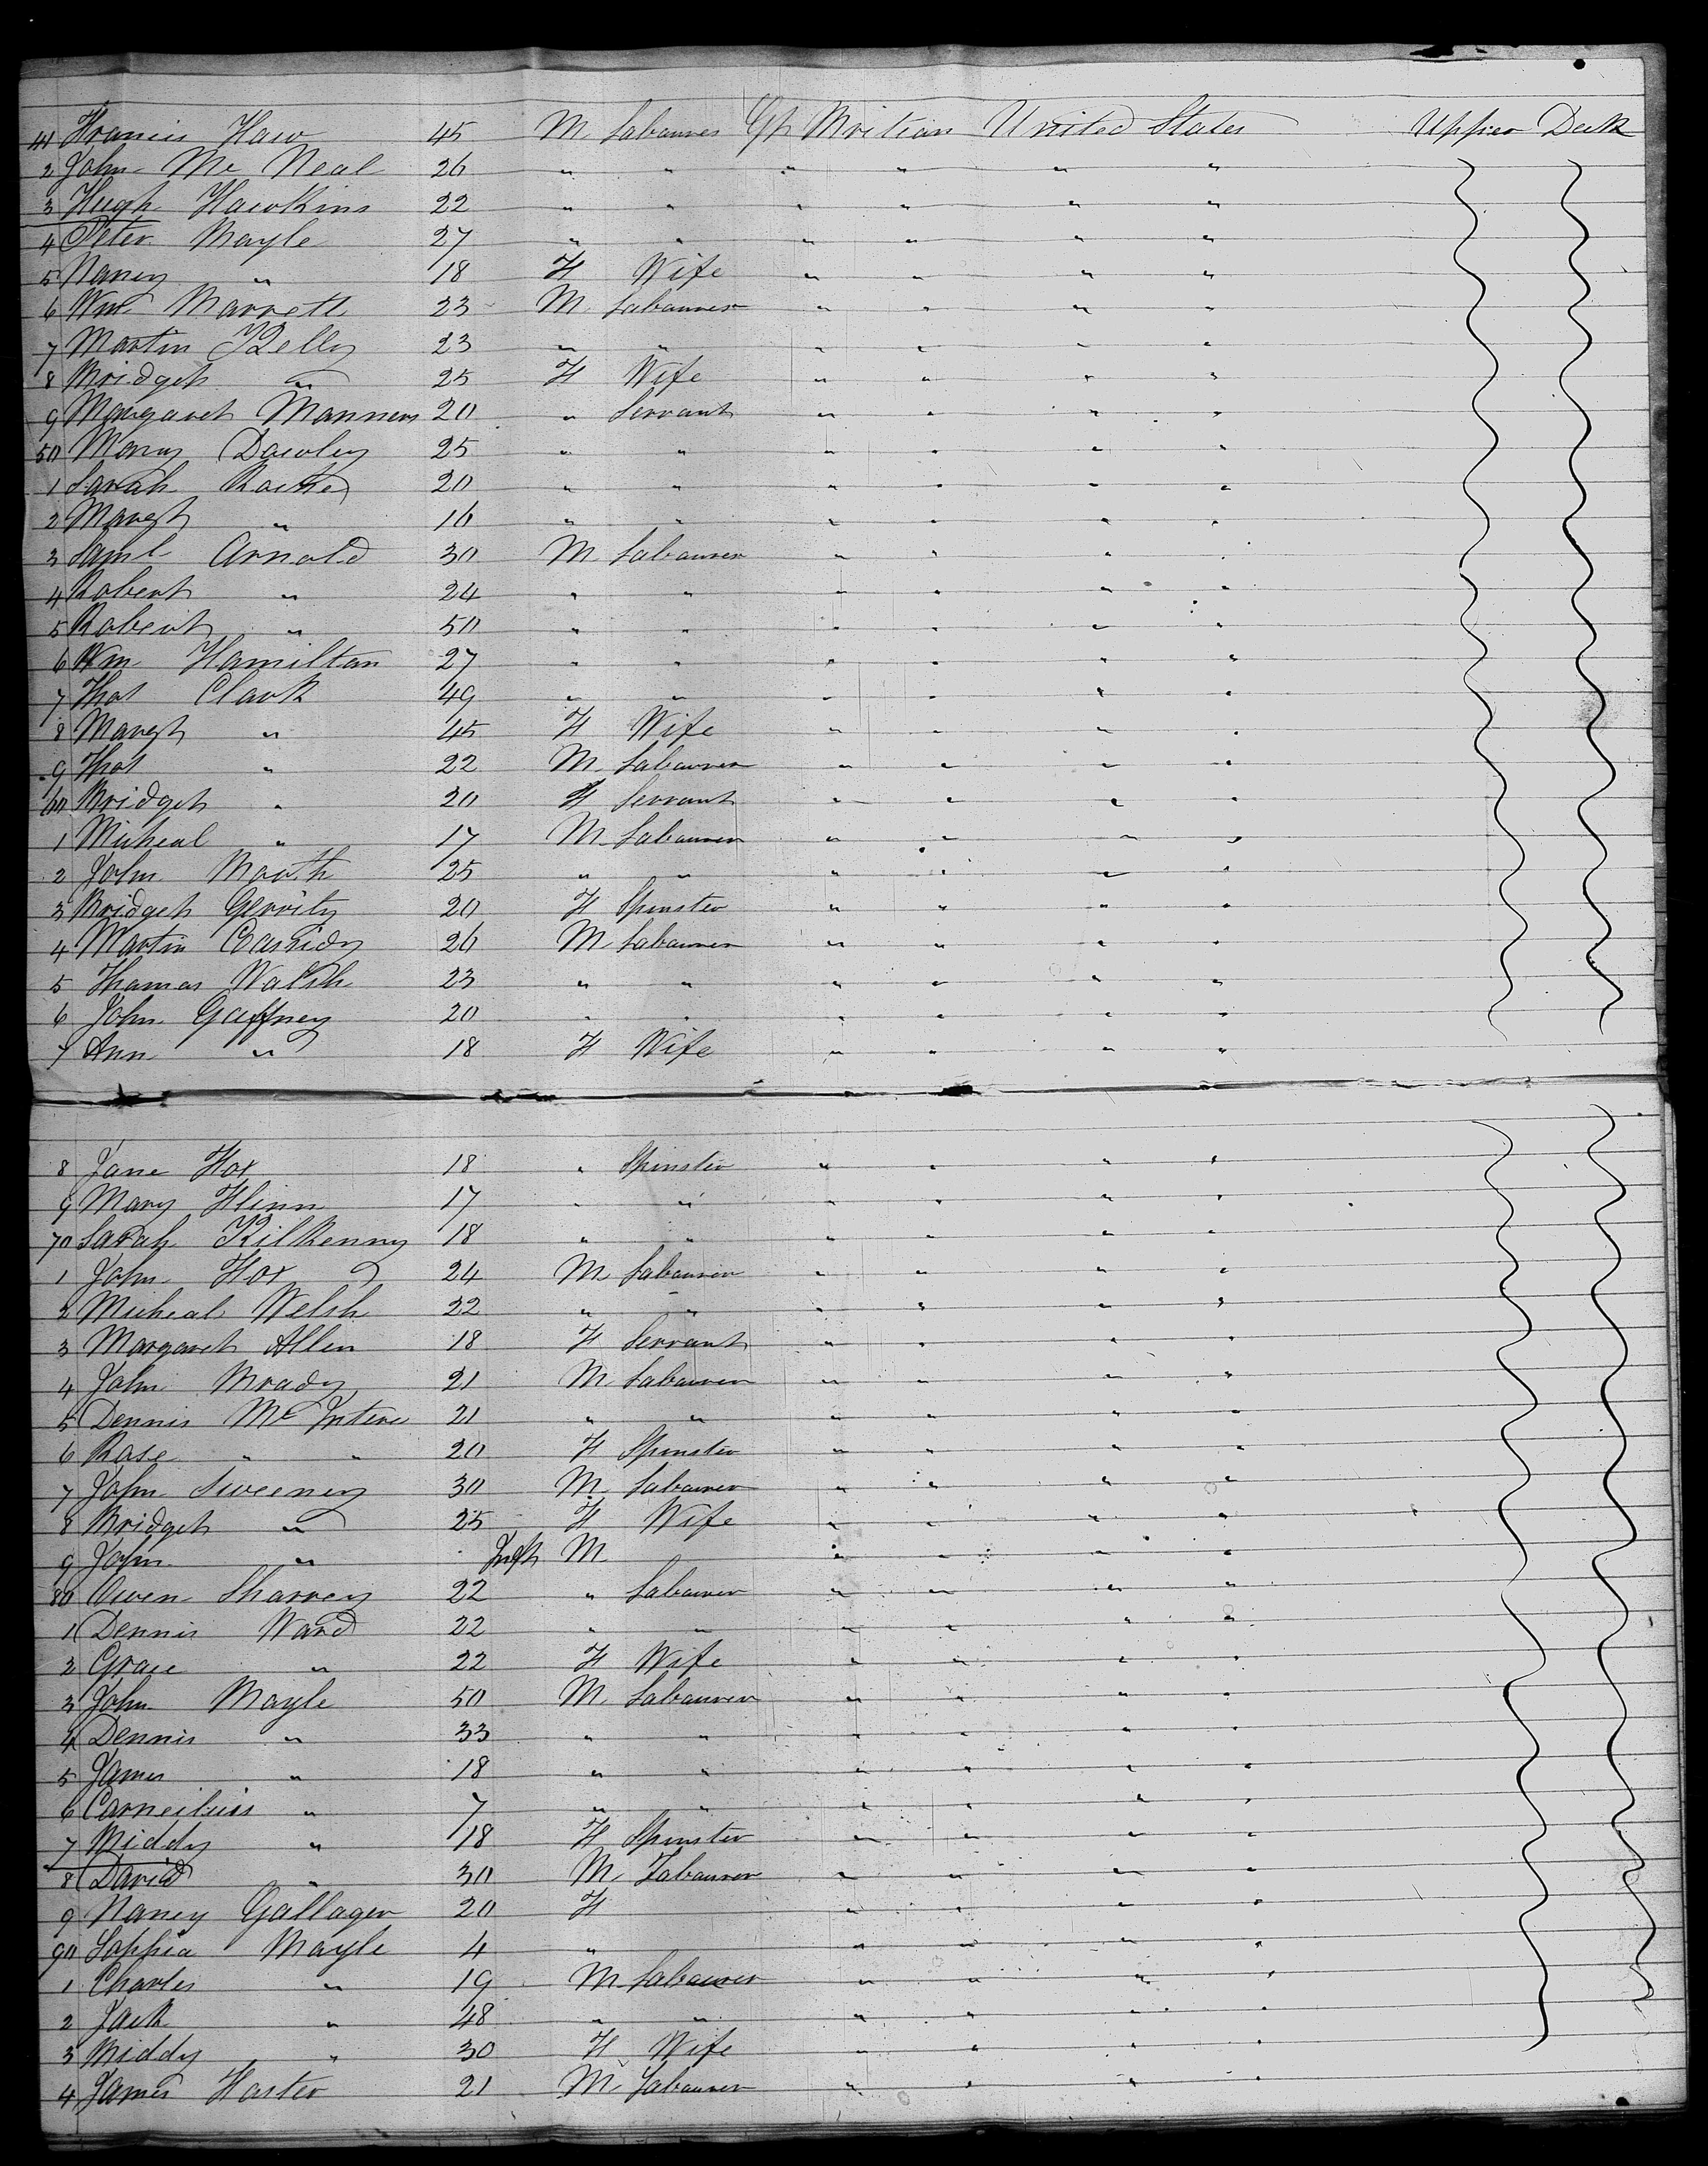 41 Francis Haw 45 M Labourer Gt Britian United States Upper Deck
2 John Mc Neal 26 " " " " " "
3 Hugh Hawkins 22 " " " " " "
4 Peter Boyle 27 " " " " " "
5 Nancy " 18 F Wife " " " "
6 Wm Barrett 23 M Labourer " " " "
7 Martin Kelly 23 " " " " " "
8 Bridget " 25 F Wife " " " "
9 Margaret Manners 20 " Servant " " " "
50 Mary Dawley 25 " " " " " "
1 Sarah 20 " " " " " "
2 Margt " 16 " " " " " "
3 Saml Arnold 30 M Labourer " " " "
4 Robert " 24 " " " " " "
5 Robert " 50 " " " " " "
6 Wm Hamilton 27 " " " " " "
7 Thos Clark 49 " " " " " "
8 Margt " 45 F Wife " " " "
9 Thos " 22 M Labourer " " " "
60 Bridget " 20 F Servant " " " "
1 Micheal " 17 M Labourer " " " "
2 John 25 " " " " " "
3 Bridget Gerrity 20 F Spinster " " " "
4 Martin Cassidy 26 M Labourer " " " "
5 Thomas Walsh 23 " " " " " "
6 John Gaffney 20 " " " " " "
7 Ann " 18 F Wife " " " "
8 Jane Fox 18 " Spinster " " " "
9 Mary Flinn 17 " " " " " "
70 Sarah Kilkenny 18 " " " " " "
1 John Fox 24 M Labourer " " " "
2 Micheal Welsh 22 " " " " " "
3 Margaret Allen 18 F Servant " " " "
4 John Brady 21 M Labourer " " " "
5 Dennis Mc Intere 21 " " " " " "
6 Rose " " 20 F Spinster " " " "
7 John Sweeney 30 M Labourer " " " "
8 Bridget " 25 F Wife " " " "
9 John " Inft M " " " "
80 Owen Sharvey 22 " Labourer " " " "
1 Dennis Ward 22 " " " " " "
2 Grace " 22 F Wife " " " "
3 John Boyle 50 M Labourer " " " "
4 Dennis " 33 " " " " " "
5 James " 18 " " " " " "
6 Corneilius " 7 " " " " " "
7 Biddy " 18 F Spinster " " " "
8 David " 30 M Labourer " " " "
9 Nancy Gallager 20 F " " " "
90 Sophia Boyle 4 " " " " "
1 Charles " 19 M Labourer " " " "
2 Jack " 48 " " " " " "
3 Biddy " 30 F Wife " " " "
4 James Foster 21 M Labourer " " " "